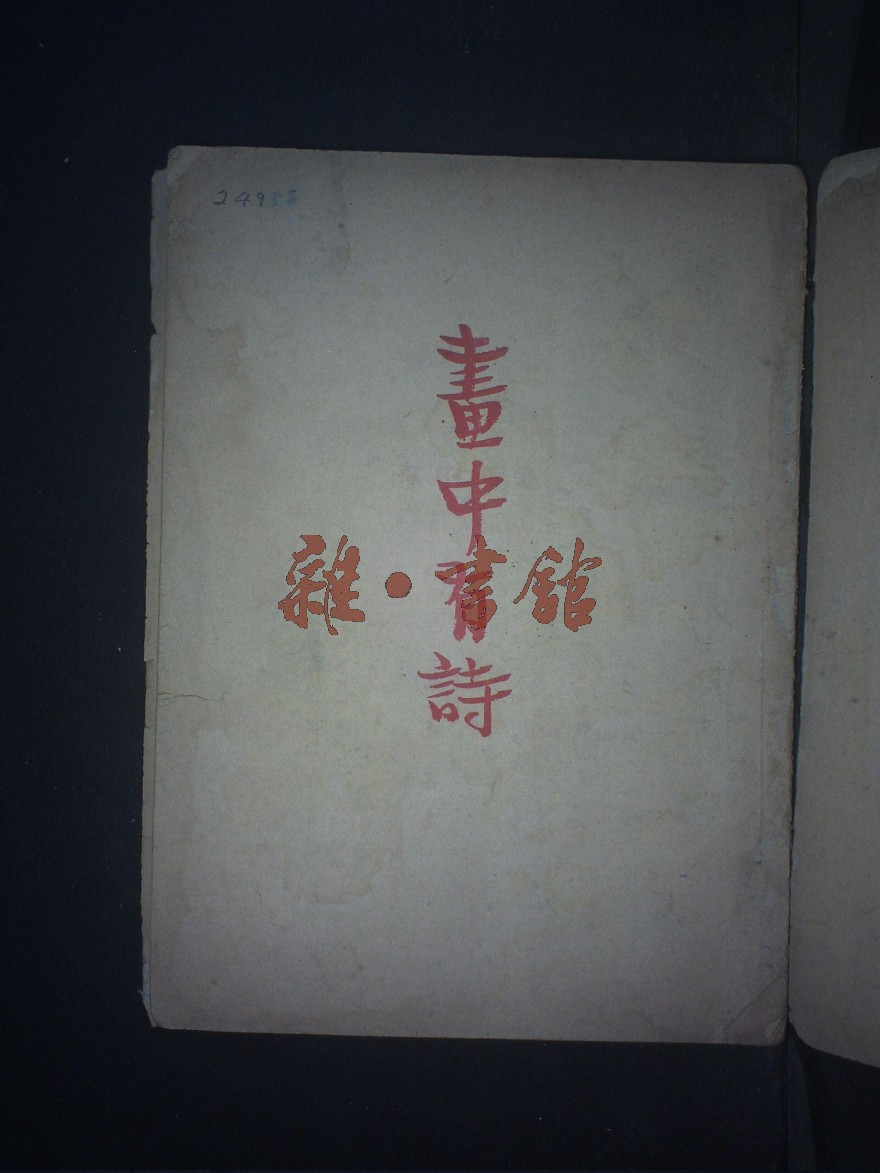 24955
畫中有詩
雜·書館